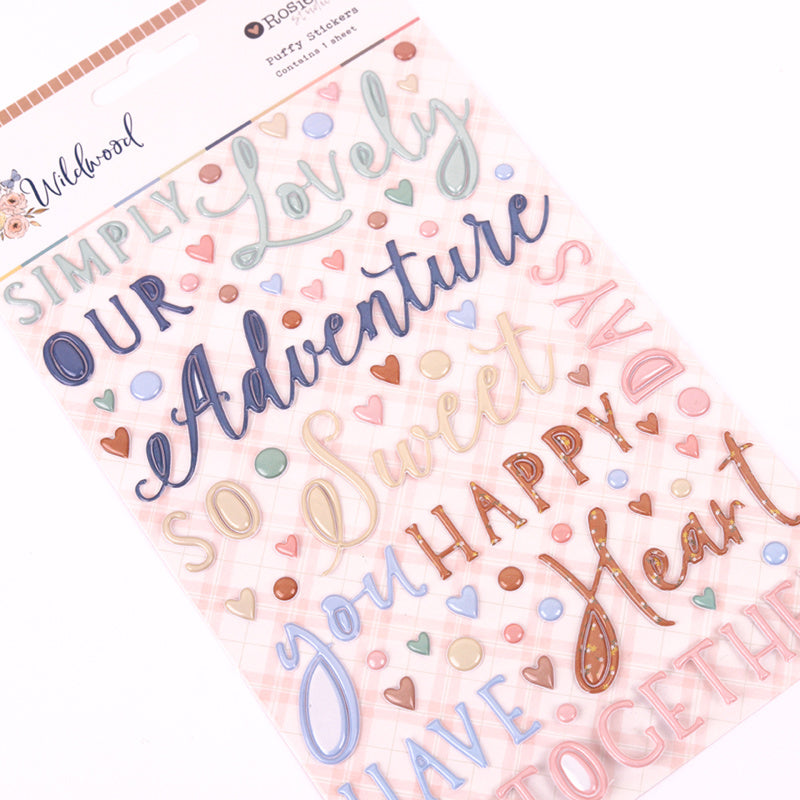 Rosie
Puffy Stickers
Contains 1 sheet
Wildwood
SIMPLY Lovely
OUR Adventure
DAYS
SO Sweet
HAPPY Heart
you
HAVE
TOGETHE